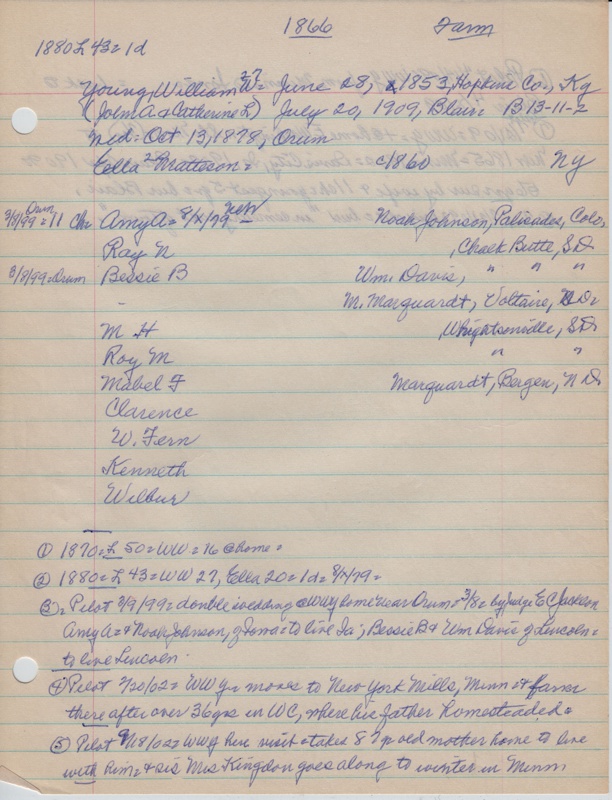 1866 Farm
1880 L 43 = 1d
Young, William W = 27 June 28, 1853, Hopkins Co., Ky
(John A & Catherine L) July 20, 1909, Blair = B 13-11-2
Med = Oct 13, 1878, Orum
Ella 20 Matteson = c1860 NY
3/8/99 = Orum 11 Chr Amy A = 8/x/79 Neb Noah Johnson, Palisades, Colo,
Ray N , Chalk Butte, S D
3/8/99 = Orum Bessie B Wm. Davis, " " "
- M. Marquardt, Voltaire, N D =
M H , Wrightsonville, S D
Roy M " "
Mabel F Marquardt, Bergen, N D
Clarence
W. Fern
Kenneth
Wilbur
① 1870 = L 50 = WW = 16 @ home =
② 1880 = L 43 = WW 27, Ella 20 = 1d = 8/x/79 =
③ = Pilot 3/9/99 = double wedding @ WWY home near Orum = 3/8 = by Judge E C Jackson
Amy A = & Noah Johnson, of Iowa = to live Ia; Bessie B & Wm Davis of Lincoln =
to live Lincoln.
④ Pilot 2/20/02 = WW Y = moves to New York Mills, Minn & farm
there after over 36 yrs in WC, where his father homesteaded =
⑤ Pilot 8/02 = WWY here visit = takes 87 y old mother home to live
with him = & sis Mrs Kingdon goes along to winter in Minn